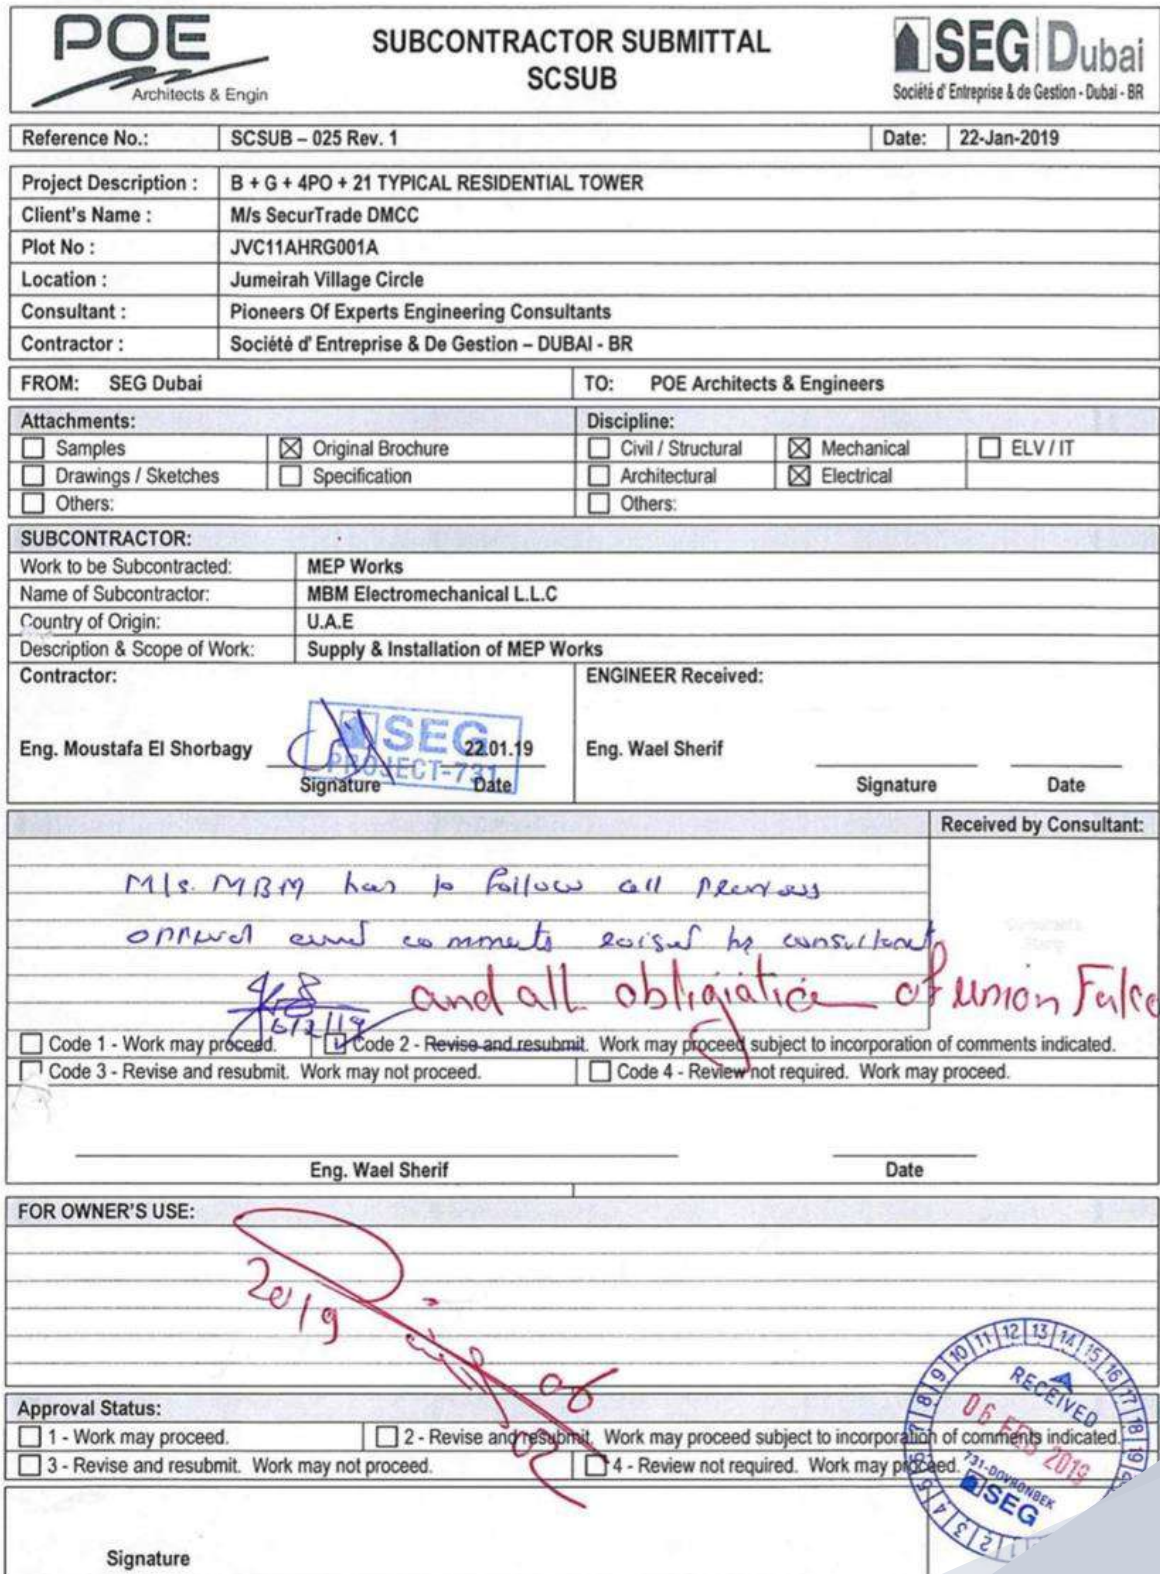 POE
Architects & Engin
SUBCONTRACTOR SUBMITTAL
SCSUB
SEG Dubai
Société d' Entreprise & de Gestion - Dubai - BR
Reference No.: SCSUB – 025 Rev. 1 Date: 22-Jan-2019
Project Description : B + G + 4PO + 21 TYPICAL RESIDENTIAL TOWER
Client's Name : M/s SecurTrade DMCC
Plot No : JVC11AHRG001A
Location : Jumeirah Village Circle
Consultant : Pioneers Of Experts Engineering Consultants
Contractor : Société d' Entreprise & De Gestion – DUBAI - BR
FROM: SEG Dubai TO: POE Architects & Engineers
Attachments: Discipline:
Samples Original Brochure Civil / Structural Mechanical ELV / IT
Drawings / Sketches Specification Architectural Electrical
Others: Others:
SUBCONTRACTOR:
Work to be Subcontracted: MEP Works
Name of Subcontractor: MBM Electromechanical L.L.C
Country of Origin: U.A.E
Description & Scope of Work: Supply & Installation of MEP Works
Contractor: ENGINEER Received:
SEG
PROJECT-731
Eng. Moustafa El Shorbagy 22.01.19 Eng. Wael Sherif
Signature Date Signature Date
Received by Consultant:
M/s. MBM has to follow all
and comments by consultant
and all of union
6/2/19
Code 1 - Work may proceed. Code 2 - Revise and resubmit. Work may proceed subject to incorporation of comments indicated.
Code 3 - Revise and resubmit. Work may not proceed. Code 4 - Review not required. Work may proceed.
Eng. Wael Sherif Date
FOR OWNER'S USE:
2019
06
02
Approval Status:
1 - Work may proceed. 2 - Revise and resubmit. Work may proceed subject to incorporation of comments indicated.
3 - Revise and resubmit. Work may not proceed. 4 - Review not required. Work may proceed.
RECEIVED
06 FEB 2019
731-DOVRONBEK
SEG
Signature